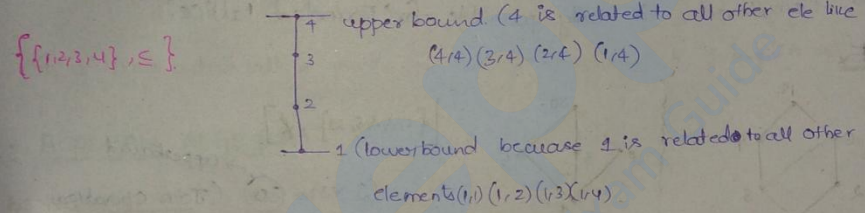 4 upper bound (4 is related to all other ele like
{{1,2,3,4}, ≤}
3 (4,4) (3,4) (2,4) (1,4)
2
1 (lowerbound becuase 1 is related to all other
elements (1,1) (1,2) (1,3) (1,4)
Guide